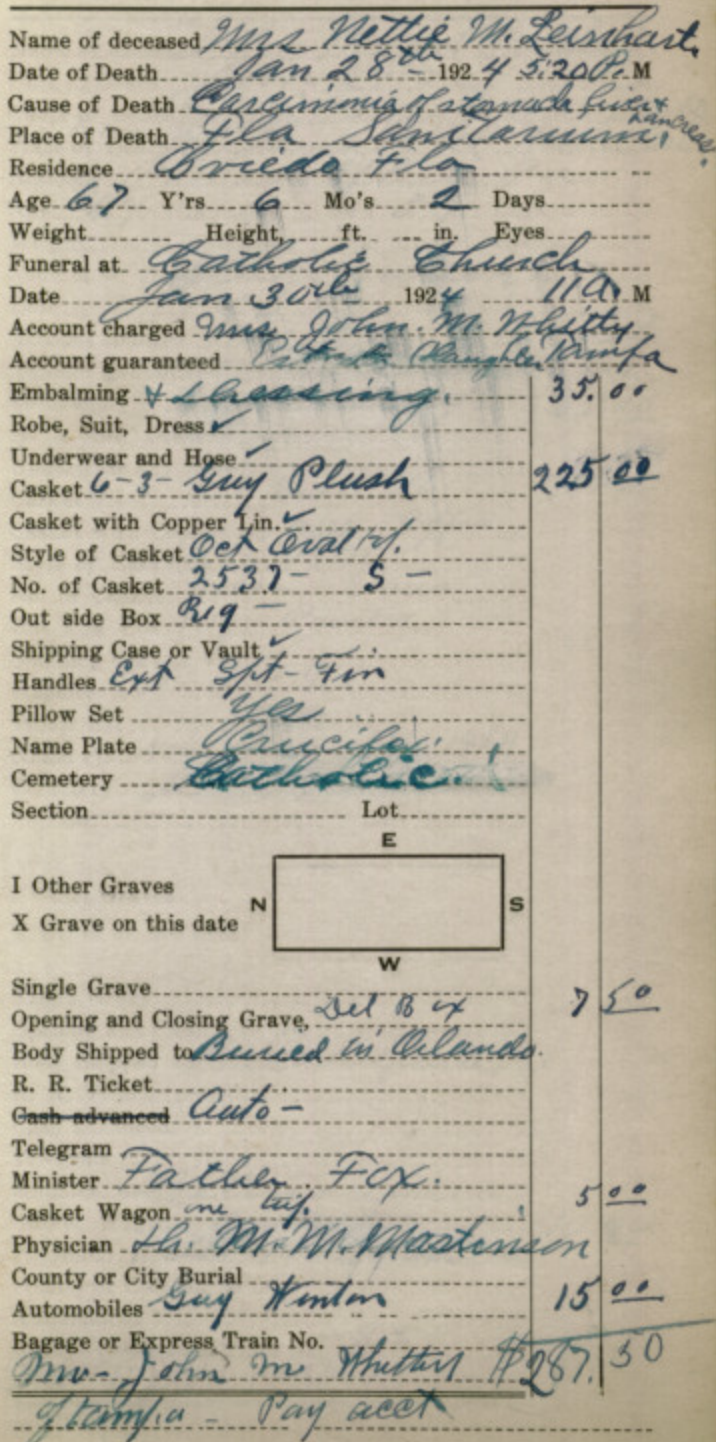 Name of deceased Mrs. Nettie M. Leinhart.
Date of Death Jan 28th 1924 5:20 P. M
Cause of Death Carcimonia of stomach liver & pancreas.
Place of Death Fla Sanitarium.
Residence Oviedo Fla
Age 67 Y'rs 6 Mo's 2 Days
Weight Height, ft. in. Eyes
Funeral at Catholic Church
Date Jan 30th 1924 11 A. M
Account charged Mrs. John. M. Whitty
Account guaranteed Daughter Tampa
Embalming & dressing. 35.00
Robe, Suit, Dress ✓
Underwear and Hose ✓
Casket 6-3- Guy Plush 225 00
Casket with Copper Lin. ✓
Style of Casket Oct Oval
No. of Casket 2537- S -
Out side Box Reg -
Shipping Case or Vault ✓
Handles Ext Fin
Pillow Set Yes
Name Plate Crucifix.
Cemetery Catholic.
Section Lot
E
I Other Graves
N S
X Grave on this date
W
Single Grave
Opening and Closing Grave, Del Box 7 50
Body Shipped to Buried in Orlando.
R. R. Ticket
Cash advanced Auto -
Telegram
Minister Father Fox.
Casket Wagon one trip. 5 00
Physician Dr. M. M. Mastenson
County or City Burial
Automobiles Guy Winton 15 00
Bagage or Express Train No.
Mr- John M Whitty $287.50
of Tampa - Pay acct